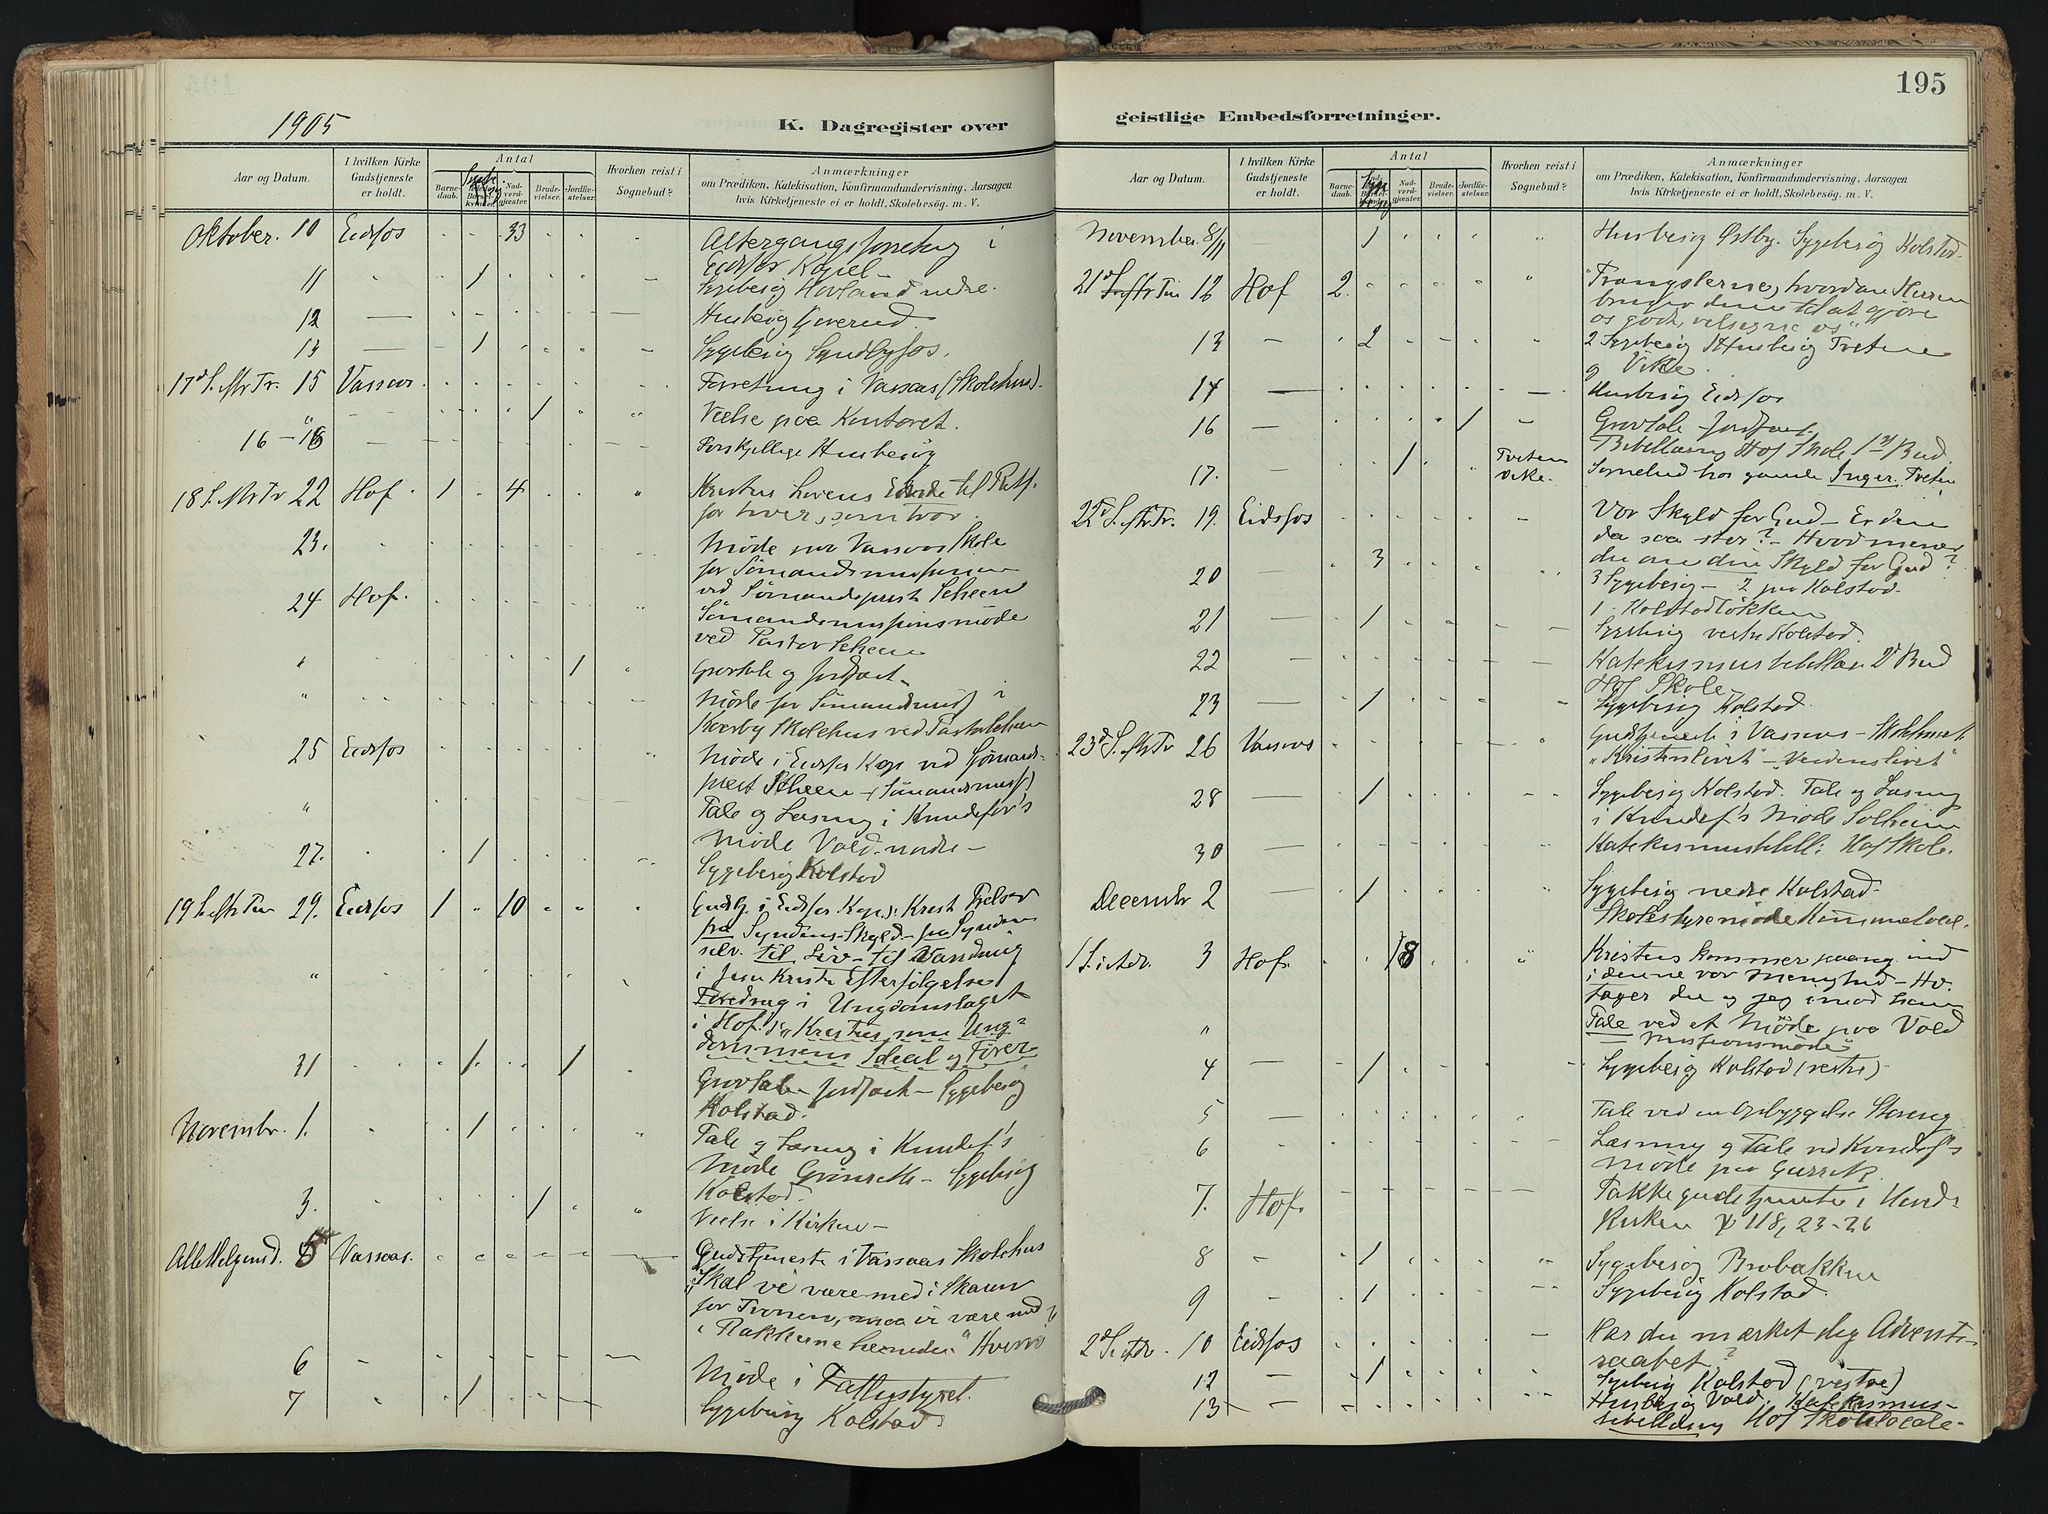 1905
K. Dagregister over
Aar og Datum.
I hvilken Kirke Gudstjeneste er holdt.
Antal
Barnedaab.
Nadverdgjæster.
Brudevielser.
Jordfæstelser.
Hvorhen reist i Sognebud?
Anmærkninger
om Prædiken, Katekisation, Konfirmandundervisning. Aarsagen
hvis Kirketjeneste ei er holdt. Skolebesøg. m. V.
Oktober. 10 Eidsfos 33 Altergangsforretng i
Eidsfos Kapel –
11 1 Sygebesøg Hovland nedre.
12 — Husbesøg Goverud
13 — 1 Sygebesøg Sundbyfos.
17d S. eftr Tr. 15 Vassaas. Forretning i Vassaas (Skolehus).
" 1 Vielse paa Kontoret.
16 – 18 Forskjellige Husbesøg
18 S. eftr Tr 22 Hof. 1 4 Kristus Lovens Ende til Retf.
for hver, som tror.
23. Møde paa Vassaas Skole
for Sømandsmissionen
24 Hof. ved Sømandsprest Scheen
Sømandsmissionsmøde
ved Pastor Scheen
" 1 Gravtale og Jordfæst.
" Møde for Sømandsmiss i
Skolehus ved Pastor Scheen
25 Eidsfos Møde i Eidsfos Kap. ved Sømands-
prest Scheen – (Sømandsmiss)
" Tale og Læsning i Kvindefor's
Møde Vold nedre –
27. 1 Sygebesøg Kolstad
19 S. eftr Trin 29. Eidsfos 1 10 Gudstj. i Eidsfos Kap.: Krist Frelser
fra Syndens Skyld – fra Synden
selv. til Liv – til Vandring
i Jesu Kristi Efterfølgelse
" Foredrag i Ungdomslaget
i Hof: "Kristus som Ung-
dommens Ideal og Fører"
31 1 1 Gravtale Jordfæst – Sygebesøg
Kolstad.
Novembr. 1. 1 Tale og Læsning i Kvindef's
Møde – Sygebesøg
Kolstad.
3. 1 Vielse i Kirken –
Alle Helgensd. 5 Vassaas. Gudstjeneste i Vassaas Skolehus
"Skal vi være med i Skaren
for Tronen, maa vi være med
i Rækkerne hernede."
6 Møde i Fattigstyret.
7 1 Sygebesøg Kolstad.
195
geistlige Embedsforretninger.
Aar og Datum.
I hvilken Kirke Gudstjeneste er holdt.
Antal
Barnedaab.
Nadverdgjæster.
Brudevielser.
Jordfæstelser.
Hvorhen reist i Sognebud?
Anmærkninger
om Prædiken, Katekisation, Konfirmandundervisning. Aarsagen
hvis Kirketjeneste ei er holdt. Skolebesøg. m. V.
November 8/11 — 1 Husbesøg Østby. Sygebesøg Kolstad.
21d S. eftr Trin 12 Hof 2. "Trængslerne, hvordan Herren
bruger dem til at gjøre
os godt, velsigne os"
13 — 2 2 Sygebesøg Husbesøg Tveten
og Vike.
14 — Husbesøg Eidsfos
16 — 1 Gravtale – Jordfæst.
Bibellæsning Hof Skole 1ste Bud
17. — 1 Tveten Vike. Sognebud hos gamle Inger Tveten
22d S. eftr Tr. 19. Eidsfos Vor Skyld for Gud – Er den
da saa stor? – Hvad mener
du om din Skyld for Gud?
20 — 3 3 Sygebesøg – 2 paa Kolstad.
1 Kolstadløkken
21 — 1 Sygebesøg vestre Kolstad.
22 — Katekismusbibellæs 2d Bud
Hof Skole
23 — 1 Sygebesøg Kolstad.
23d S. eftr Tr 26 Vassaas Gudstjeneste i Vassaas – Skolehuset.
"Kristenlivet" – "Verdenslivet"
28 — 1 Sygebesøg Kolstad. Tale og Læsning
i Kvindef's Møde Solheim
30 — Katekismusbibell: Hof Skole.
Decembr 2 — 1 Sygebesøg nedre Kolstad –
Skolestyremøde Kommunelocal.
1 S. i Adv. 3 Hof. 18 Kristus kommer paany ind
i denne vor Menighed – Hv.
tager du og jeg imod ham
" Tale ved et Møde paa Vold
– Missionsmøde"
4 — 1 Sygebesøg Kolstad (vestre) –
5 — Tale ved en Opbyggelse
6 — Læsning og Tale ved Kvindef's
Møde paa
7. Hof. Takkegudstjeneste i Hoved-
kirken ψ 118, 23-26
8 – 1 Sygebesøg Brobakken
9 – 1 Sygebesøg Kolstad.
2d S. i Adv. 10 Eidsfos Har du mærket dig Advents-
raabet?
12 – 1 Sygebesøg Kolstad (vestre)
13 – Husbesøg Vold. Katekismus-
bibellæsning Hof Skolelocale –